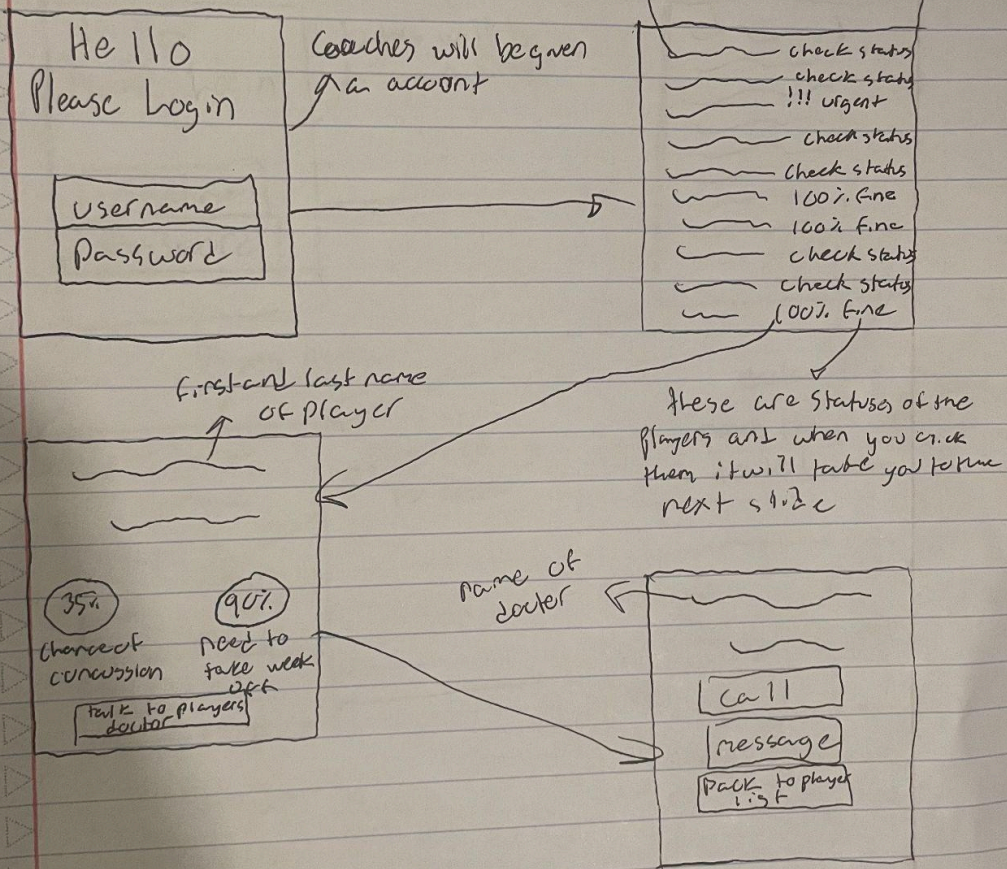 Hello
Please Login
username
Password
Coaches will be given
an account
check status
check status
!!! urgent
check status
check status
100% fine
100% fine
check status
check status
100% fine
these are statuses of the
players and when you click
them it will take you to the
next slide
first and last name
of player
35%
chance of
concussion
90%
need to
take week
off
talk to players
doctor
name of
docter
call
message
back to player
list